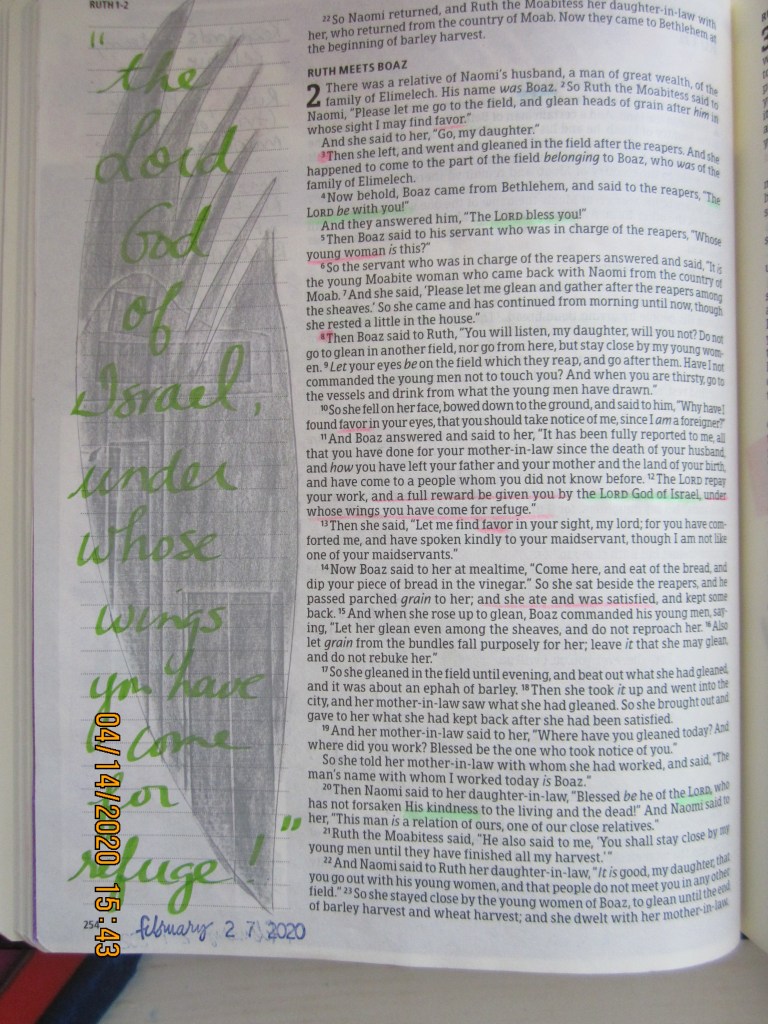 RUTH 1-2
"
the
Lord
God
of
Israel,
under
whose
wings
you have
come
for
refuge!"
254
february 27 2020
04/14/2020 15:43
22 So Naomi returned, and Ruth the Moabitess her daughter-in-law with
her, who returned from the country of Moab. Now they came to Bethlehem at
the beginning of barley harvest.
RUTH MEETS BOAZ
2 There was a relative of Naomi's husband, a man of great wealth, of the
family of Elimelech. His name was Boaz. 2 So Ruth the Moabitess said to
Naomi, "Please let me go to the field, and glean heads of grain after him in
whose sight I may find favor."
And she said to her, "Go, my daughter."
3 Then she left, and went and gleaned in the field after the reapers. And she
happened to come to the part of the field belonging to Boaz, who was of the
family of Elimelech.
4 Now behold, Boaz came from Bethlehem, and said to the reapers, "The
LORD be with you!"
And they answered him, "The LORD bless you!"
5 Then Boaz said to his servant who was in charge of the reapers, "Whose
young woman is this?"
6 So the servant who was in charge of the reapers answered and said, "It is
the young Moabite woman who came back with Naomi from the country of
Moab. 7 And she said, 'Please let me glean and gather after the reapers among
the sheaves.' So she came and has continued from morning until now, though
she rested a little in the house."
8 Then Boaz said to Ruth, "You will listen, my daughter, will you not? Do not
go to glean in another field, nor go from here, but stay close by my young wom-
en. 9 Let your eyes be on the field which they reap, and go after them. Have I not
commanded the young men not to touch you? And when you are thirsty, go to
the vessels and drink from what the young men have drawn."
10 So she fell on her face, bowed down to the ground, and said to him, "Why have I
found favor in your eyes, that you should take notice of me, since I am a foreigner?"
11 And Boaz answered and said to her, "It has been fully reported to me, all
that you have done for your mother-in-law since the death of your husband,
and how you have left your father and your mother and the land of your birth,
and have come to a people whom you did not know before. 12 The LORD repay
your work, and a full reward be given you by the LORD God of Israel, under
whose wings you have come for refuge."
13 Then she said, "Let me find favor in your sight, my lord; for you have com-
forted me, and have spoken kindly to your maidservant, though I am not like
one of your maidservants."
14 Now Boaz said to her at mealtime, "Come here, and eat of the bread, and
dip your piece of bread in the vinegar." So she sat beside the reapers, and he
passed parched grain to her; and she ate and was satisfied, and kept some
back. 15 And when she rose up to glean, Boaz commanded his young men, say-
ing, "Let her glean even among the sheaves, and do not reproach her. 16 Also
let grain from the bundles fall purposely for her; leave it that she may glean,
and do not rebuke her."
17 So she gleaned in the field until evening, and beat out what she had gleaned,
and it was about an ephah of barley. 18 Then she took it up and went into the
city, and her mother-in-law saw what she had gleaned. So she brought out and
gave to her what she had kept back after she had been satisfied.
19 And her mother-in-law said to her, "Where have you gleaned today? And
where did you work? Blessed be the one who took notice of you."
So she told her mother-in-law with whom she had worked, and said, "The
man's name with whom I worked today is Boaz."
20 Then Naomi said to her daughter-in-law, "Blessed be he of the LORD, who
has not forsaken His kindness to the living and the dead!" And Naomi said to
her, "This man is a relation of ours, one of our close relatives."
21 Ruth the Moabitess said, "He also said to me, 'You shall stay close by my
young men until they have finished all my harvest.'"
22 And Naomi said to Ruth her daughter-in-law, "It is good, my daughter, that
you go out with his young women, and that people do not meet you in any other
field." 23 So she stayed close by the young women of Boaz, to glean until the end
of barley harvest and wheat harvest; and she dwelt with her mother-in-law.